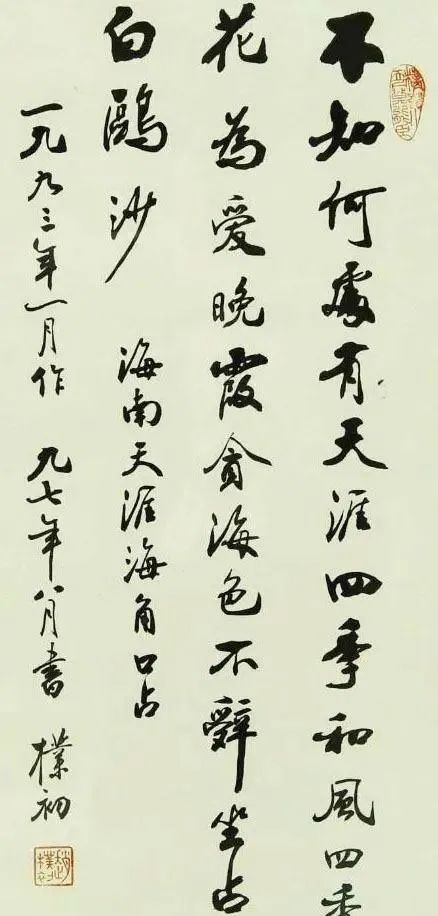 不知何處有天涯四季和風四季
花為愛晚霞貪海色不辭坐占
白鷗沙 海南天涯海角口占
一九九三年一月作 九七年八月書 樸初
趙樸初